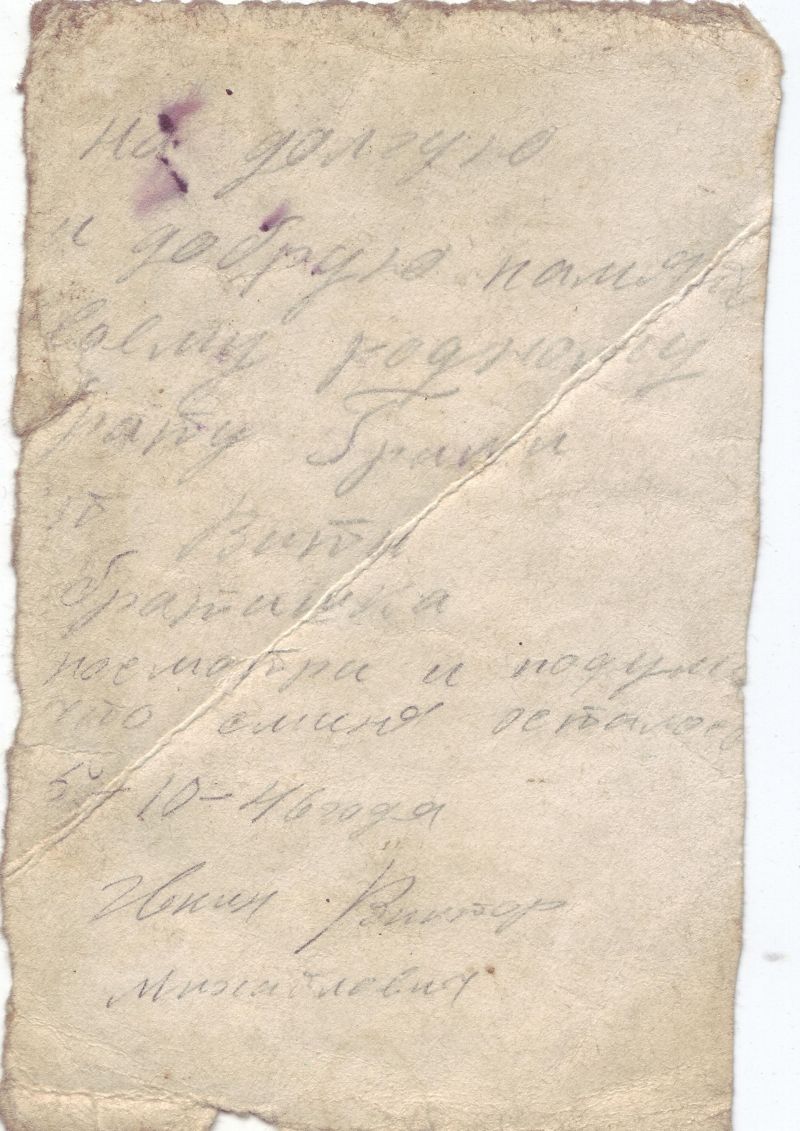 на долгую
и добрую память
своему родному
брату
от Вити
братишка
посмотри и подумай
что сминя осталось
5-10-46 года
Ивкин Виктор
михайлович